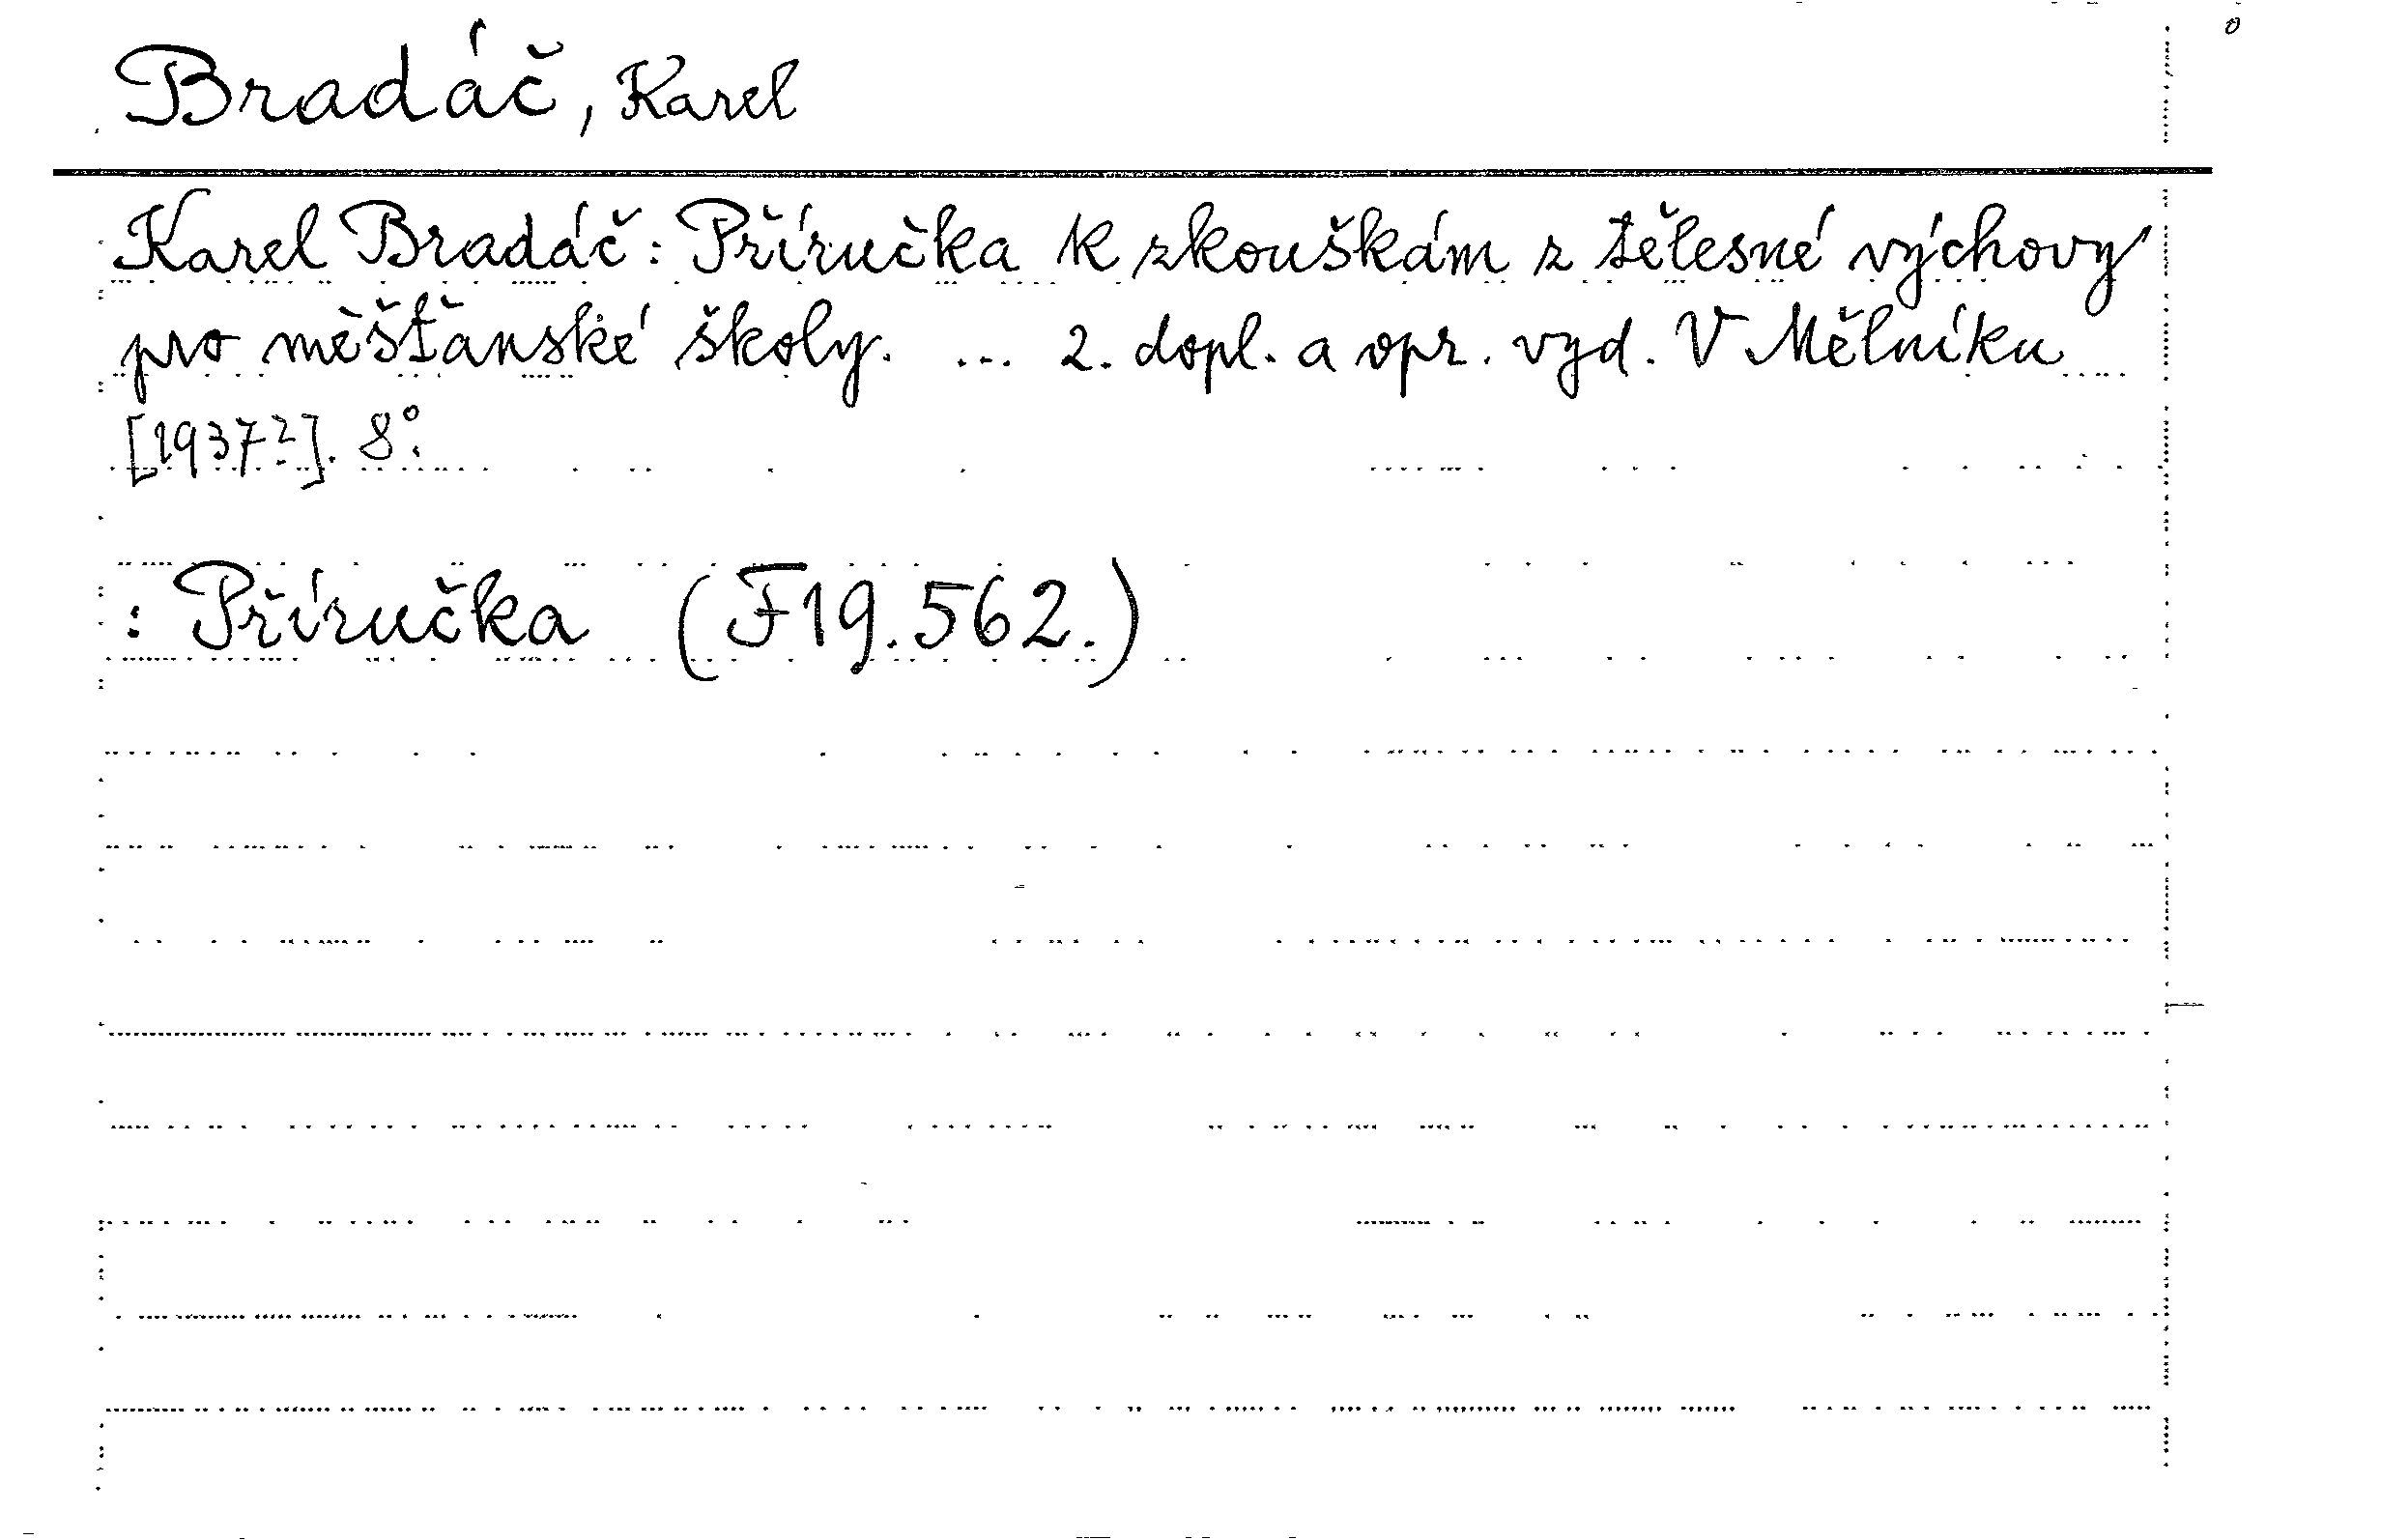 Bradáč, Karel
Karel Bradáč: Příručka k zkouškám z tělesné výchovy
pro měšťanské školy. ... 2. dopl. a opr. vyd. V Mělníku
[1937?]. 8°.
: Příručka (F19.562.)